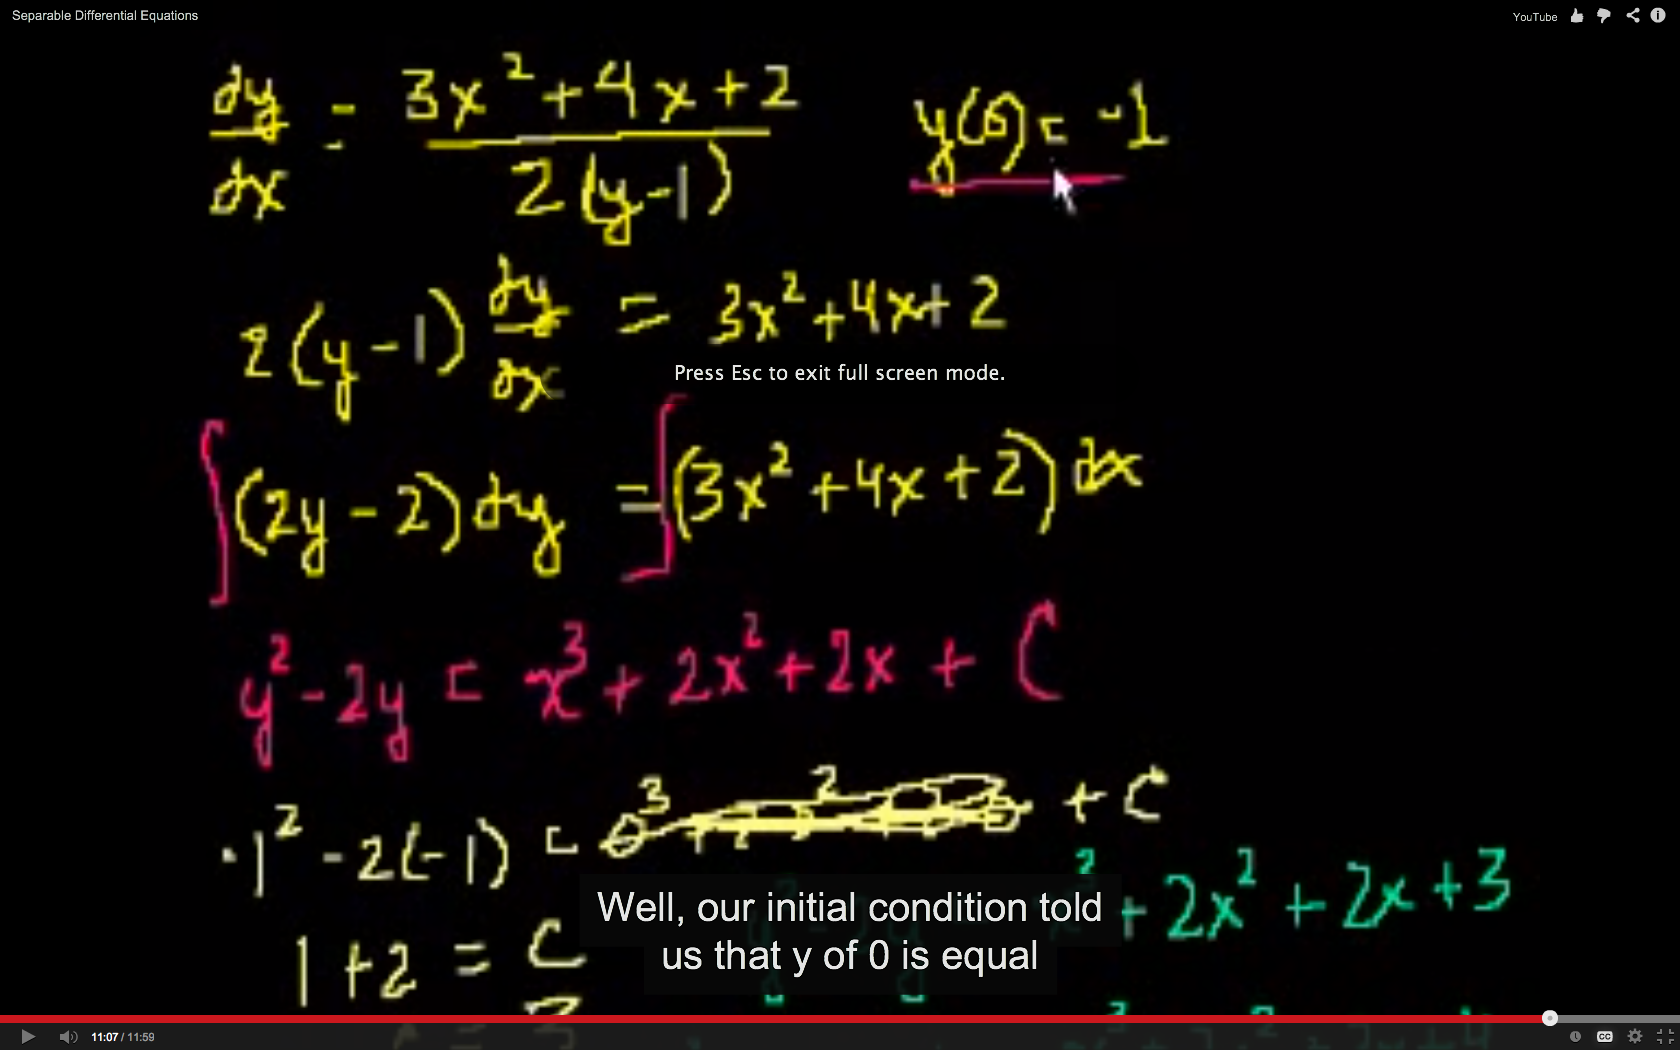 Separable Differential Equations
YouTube
dy/dx = (3x² + 4x + 2) / (2(y-1))
y(0) = -1
2(y-1) dy/dx = 3x² + 4x + 2
Press Esc to exit full screen mode.
∫(2y - 2) dy = ∫(3x² + 4x + 2) dx
y² - 2y = x³ + 2x² + 2x + C
-1² - 2(-1) = + C
+ 2x² + 2x + 3
1 + 2 = C
Well, our initial condition told
us that y of 0 is equal
11:07 / 11:59
CC